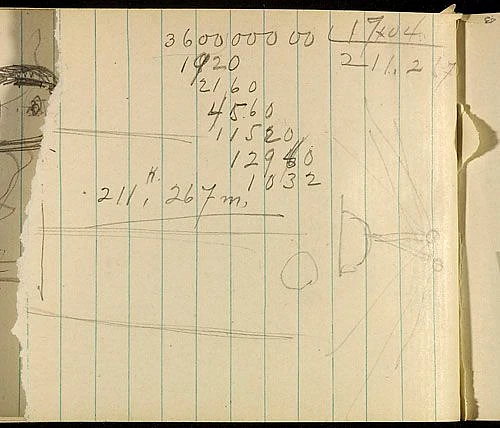 360000000 1704
1920 211,267
2160
4560
11520
12960
1032
H.
211, 267 m.